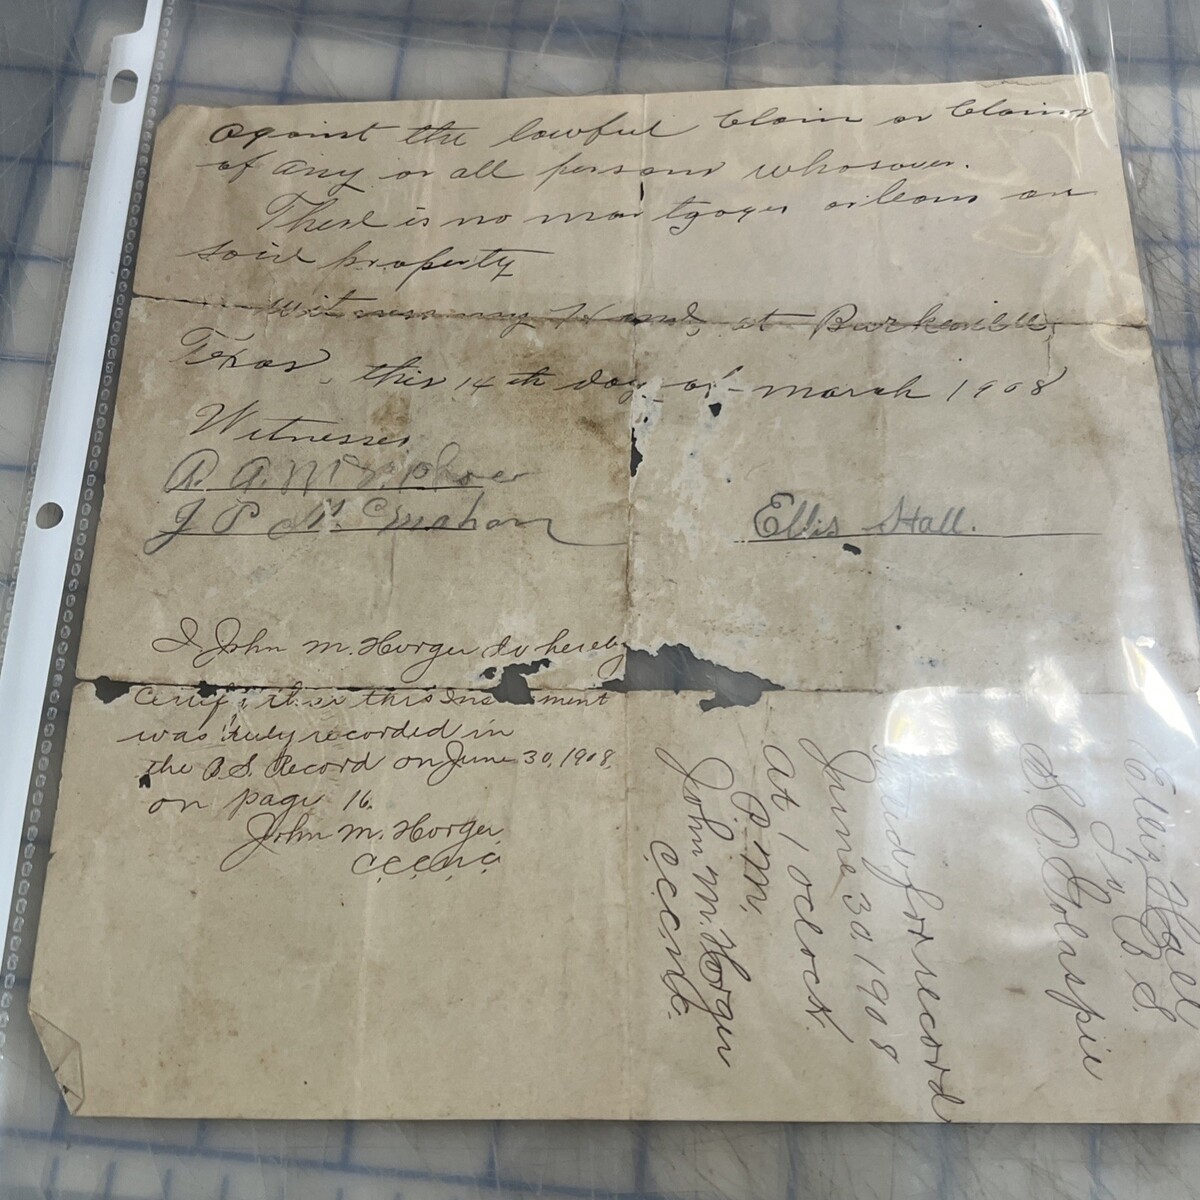 against the lawful Claim or Claims
of any or all persons whosoever.
There is no mortgages or leans on
said property
Witness my Hand, at Burkeville,
Texas, this 14th day of March 1908
Witnesses
R. A.
J P Mc mahon
Ellis Hall.
I John M. Horger do hereby
certify that this Inst ment
was duly recorded in
the B.S. Record on June 30, 1908,
on page 16.
John M. Horger
C.C.C.N.C.
Ellis Hall
To B.S.
S. O. Golaspie
for record
June 30, 1908
at 1 oclock
P.M.
John M. Horger
C.C.C.N.C.